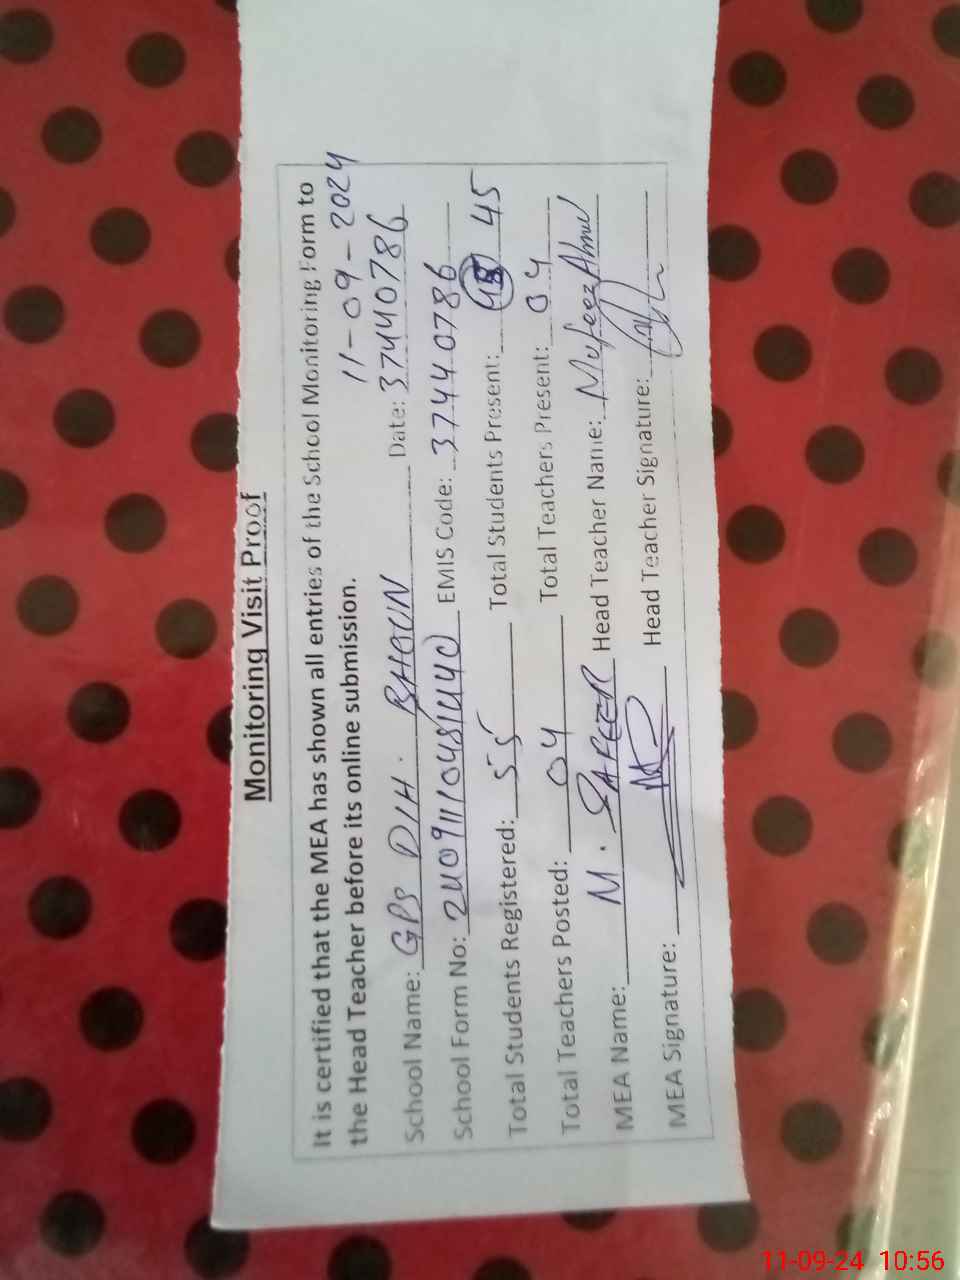 Monitoring Visit Proof
It is certified that the MEA has shown all entries of the School Monitoring Form to
the Head Teacher before its online submission.
11-09-2024
School Name: GPS DIH. BHOUN Date: 37440786
School Form No: EMIS Code: 37440786
Total Students Registered: 55 Total Students Present: 45
Total Teachers Posted: 04 Total Teachers Present: 04
MEA Name: M. SAFEER Head Teacher Name: Mufeez Ahmed
MEA Signature: Head Teacher Signature:
11-09-24 10:56